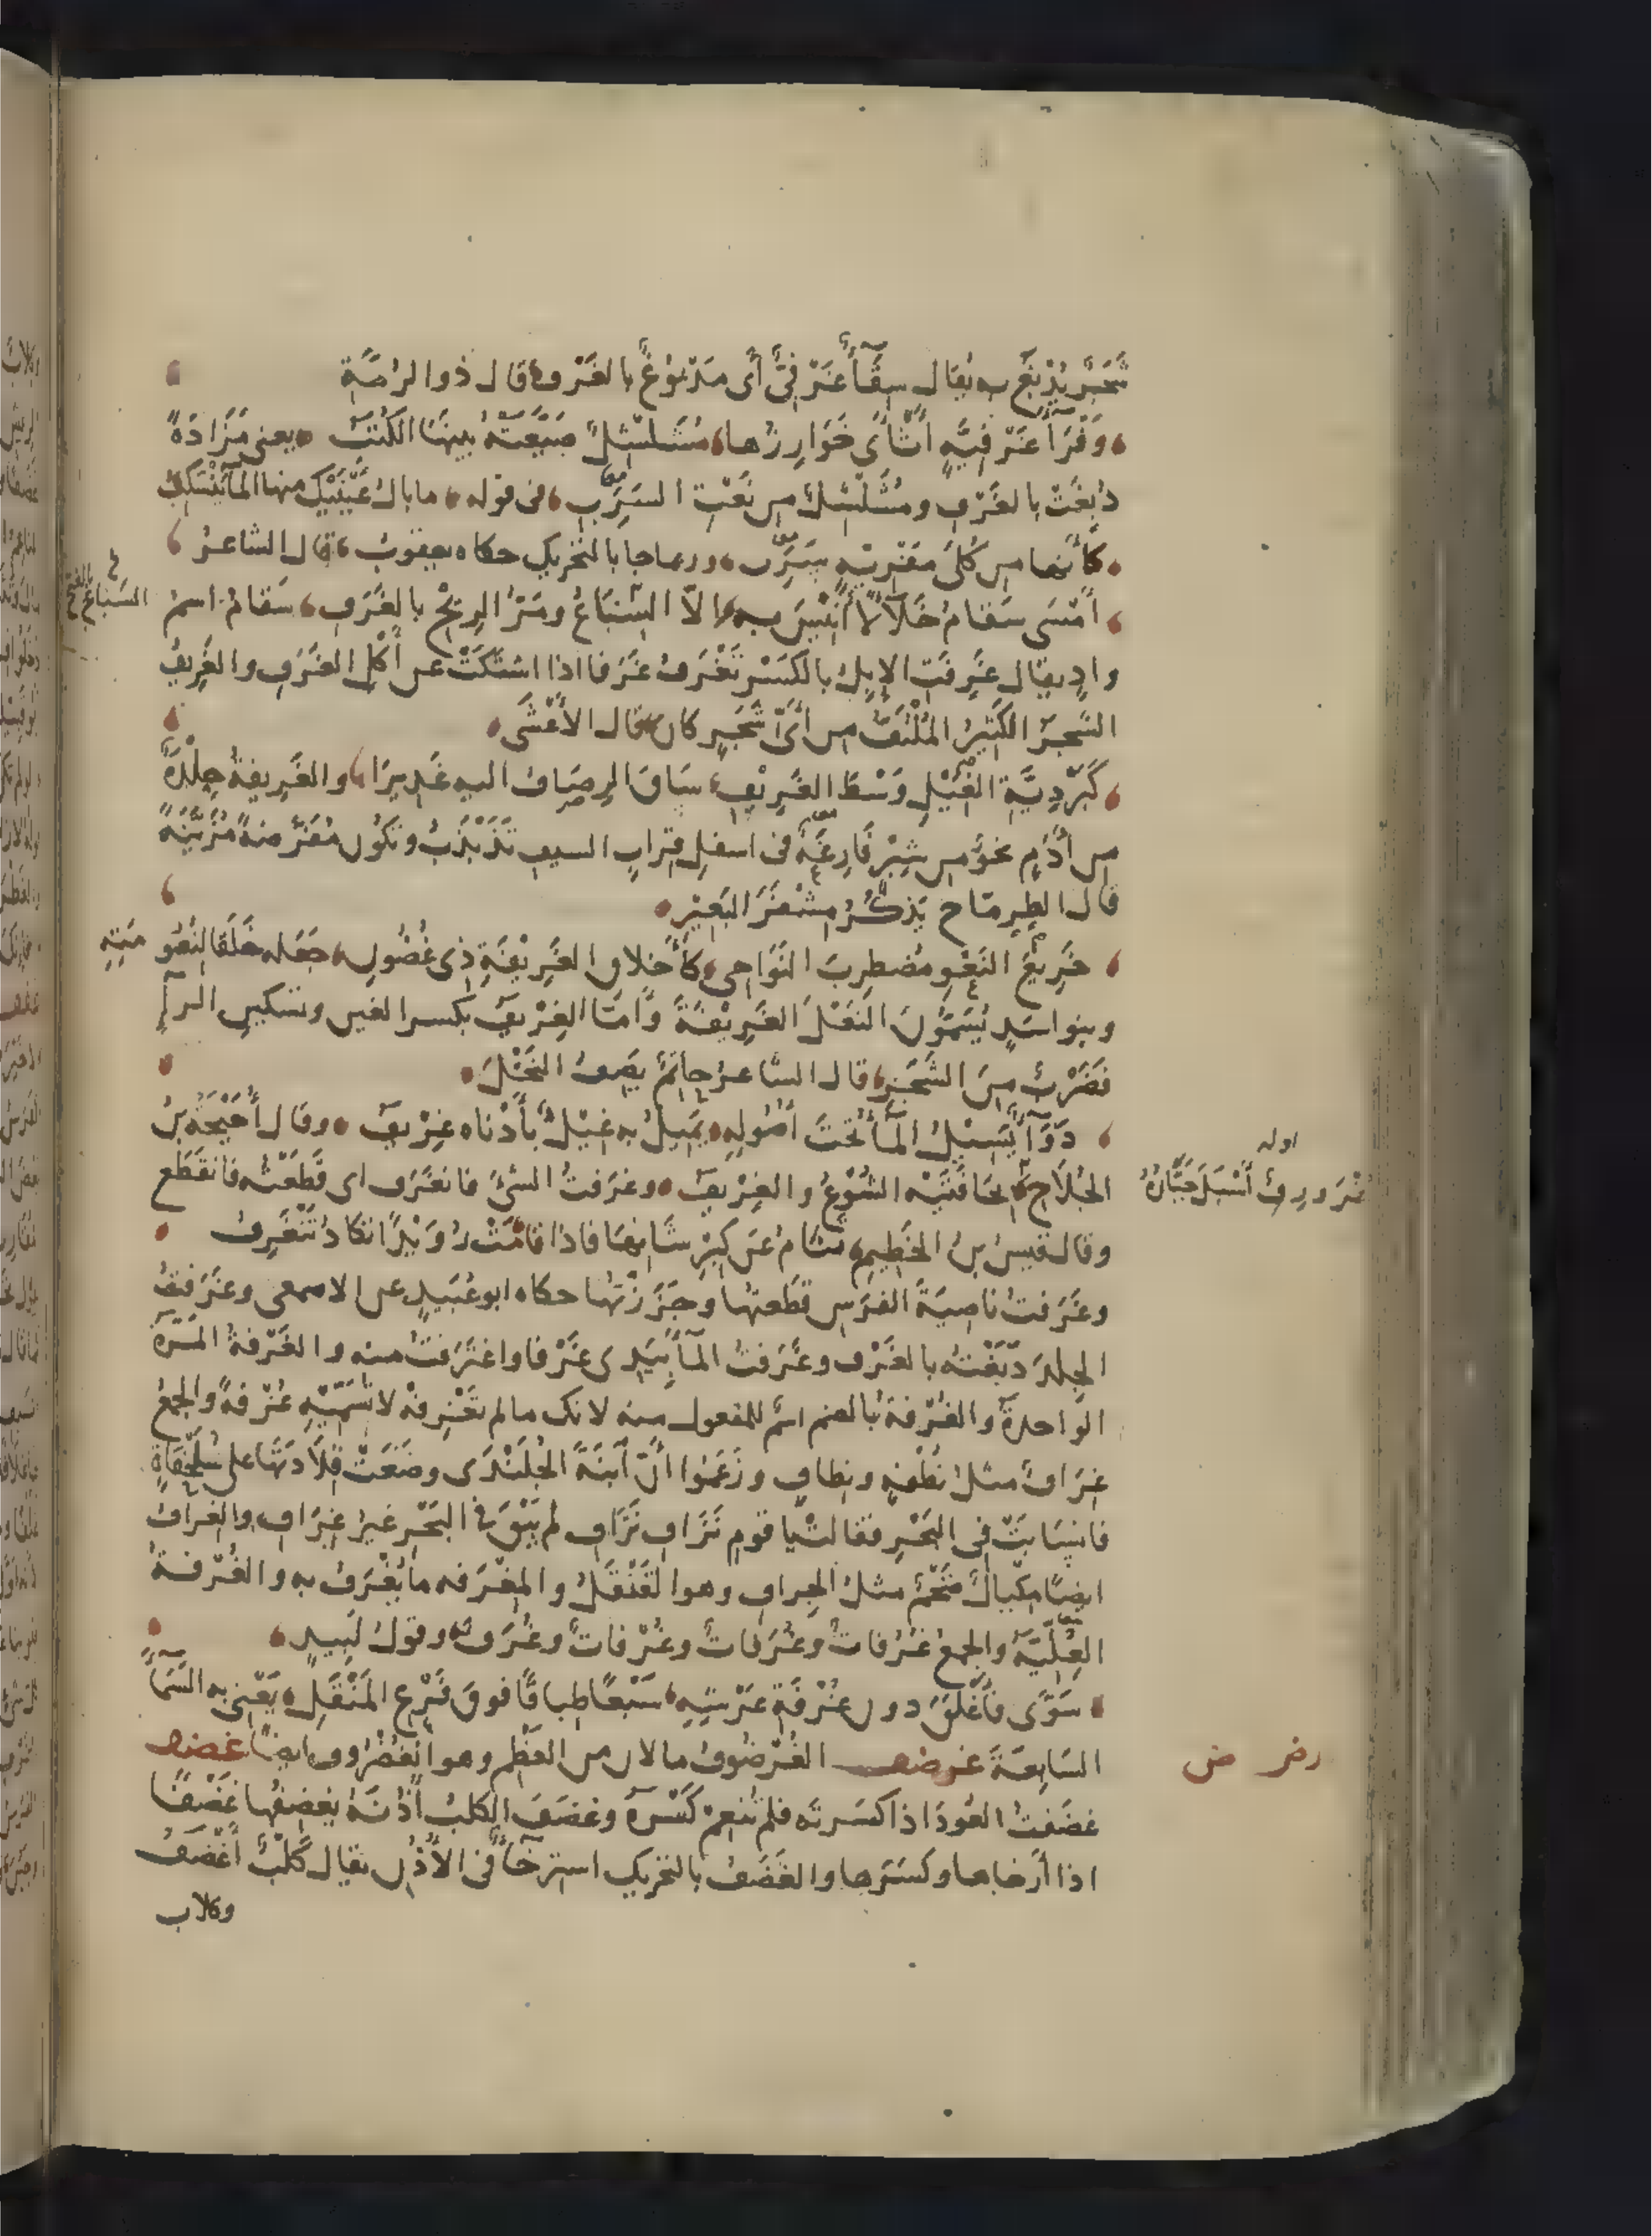 شَجَرٌ يُدْبَغُ به يُقال سِقَآءٌ غَرْفِيٌّ أى مَدْبُوغٌ بالغَرْف قال ذوالرُمَّةِ
وَفْرَآءَ غَرْفِيَّةٍ أَثْأَى خَوَارِزُها مُشَلْشِلٌ ضَيَّعَتْهُ بينها الكُتَبُ يعنى مَزَادَةً
دُبِغَتْ بالغَرْفِ ومُشَلْشِلٌ من نَعْتِ السَرَبِ فى قوله ما بالُ عَيْنَيْكَ منها المَآءُ يَنْسَكِبُ
كأنّها من كُلَى مَفْرِيَّةٍ سَرِبُ وربما جا بالتحريك حكاه يعقوبُ قال الشاعرُ
أَمْسَى سَقامُ خَلَآءً لا أَنِيْسَ به إلاّ السِّبَاعُ ومَرُّ الرِيْحِ بالغَرَفِ سَقامُ اسمُ
السباعَ بالفتح
وادٍ يقال غَرِفَتِ الإبِلُ بالكَسْرِ تَغْرَفُ غَرَفا اذا اشتَكَتْ عن أكْلِ الغَرَفِ والغَرِيفُ
الشَجَرُ الكَثِيرُ المُلْتَفُّ من أىّ شَجَرٍ كان قال الأعْشَى
كَبَرْدِيَّةِ الغِيْلِ وَسْطَ الغَرِيْفِ سَاقَ الرِصَافُ اليه غَدِيرَا والغَرِيفةُ جِلْدَةٌ
من أدَمٍ نحوٌ من شِبْرٍ فَارِغَةٌ فى اسفلِ قِرابِ السيفِ تَذَبْذَبُ وتكُون مُفَرَّضةً مُزَيَّنَةً
قال الطِرِمّاح يَذكُرُ مِشْفَرَ البَعيْرِ
خَرِيْعَ النَعْوِ مُضطرِبَ النَوَاحِى كأَخلاقِ الغَرِيْفَةِ ذى غُضُونِ جَعَله خَلَقا لنُعُومَتِهِ
وبنو اسَدٍ يُسَمُّونَ النَعْلَ الغَرِيْفَةَ وأمّا الغِرْيَفُ بكسر الغين وتسكين الرآءِ
فَضَرْبٌ مِنَ الشَجَرِ قال الشاعرُ حاتمٌ يصِفُ النَخْلَ
رَوَآءٌ يَسيلُ المآءُ تَحْتَ أُصُولِهِ يَمِيلُ به غِيْلٌ بأَدْناه غِرْيَفُ وقال أُحَيْحَةُ بنُ
الجُلاَحِ بحَافَتَيْهِ الشُوْعُ والغِرْيَفُ وغَرَفتُ الشئَ فانغَرَفَ اى قَطَعْتُه فانقَطَع
اوله
مُعْرَوْرِفٌ أَسْبَلَ جَبَّارُهُ
وقال قيسُ بنُ الخَطِيمِ تَنَامُ عَن كِبْرِ شَانِها فاذا قامَتْ رُوَيْدًا تكادُ تَنْغَرِفُ
وغَرَفتُ ناصِيَةَ الفرَسِ قطَعتها وجَزَزْتُها حكاه ابو عُبَيدٍ عن الاصمعى وغَرَفتُ
الجِلدَ دَبَغْتُه بالغَرْف وغَرَفتُ المآءَ بِيَدِى غَرْفا واغتَرَفتُ منه والغَرْفةُ المَرّةُ
الوَاحدةُ والغُرْفةُ بالضم اسمٌ للمفعول منه لانك مالم تَغْرِفْهُ لا تُسَمِّيْهِ غُرْفةً والجمعُ
غِرَافٌ مثلُ نُطْفةٍ ونِطافٍ وزَعَمُوا أنّ اَبنَةَ الجُلَنْدَى وضَعَتْ قِلاَدَتَها على سُلَحْفَاةٍ
فانسَابَتْ فى البَحْرِ فقالتْ يا قومِ نَزَافِ نَزَافِ لم يَبْقَ فى البَحْرِ غيرُ غِرَافٍ والغِرافُ
ايضًا مِكيالٌ ضَخْمٌ مثلُ الجِرافِ وهو القَنْقَلُ والمِغْرَفه ما يُغْرَفُ به والغُرْفةُ
العِلّيّةُ والجمعُ غُرُفاتٌ وغُرَفاتٌ وغُرْفاتٌ وغُرَفٌ وقولُ لَبِيدٍ
سَوَّى فأَغْلَقَ دون غُرْفَةِ عَرْشِهِ سَبْعًا طِباقًا فوقَ فَرْعِ المَنْقَلِ يَعْنى به السَّمآءَ
السَابِعَةَ غرضف الغُرْضُوفُ ما لان من العَظْم وهو الغُضْرُوف ايضًا غضف
رضر ض
غضَفتُ العُودَ اذا كسَرته فلم تُنعِم كَسْرَهُ وغضَفَ الكلبُ أُذُنَهُ يغضِفُها غَضْفًا
اذا أرخاها وكسَرَها والغَضَفُ بالتحريك استرخآءٌ فى الاُذُنِ يقال كَلبٌ أَغْضَفُ
وكلاب